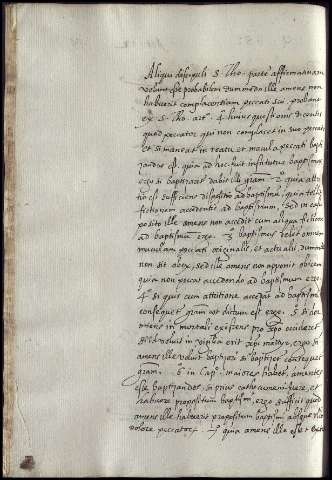 Aliqui discipuli S. Tho. partē affirmativam
volunt esse probabilem dummodo ille amens non
habuerit complacentiam peccati sui. probant
ex S. Tho. art. 4 huius questionis
quod peccator qui non complacet in suo peccato
et si maneat in reatu et macula peccati bapti
zandus est. quia ad hoc fuit institutus baptismus
ergo si baptizatur dabit illi gram. 2º quia
est sufficiens dispositio ad baptismū, quia tollit
fictionem accedentis ad baptismum, sed in casu
posito ille amens non accedit cum aliqua fictione
ad baptismū ergo. 3º baptismus delet omnem
maculam peccati originalis, et actualis dummodo
non sit obex, sed ille amens non apponit obicem
quia non peccat accedendo ad baptismum ergo.
4º si quis cum attritione accedat ad baptismū
consequet gram ut dictum est ergo. 5 si
amens in mortali existens pro xpo occideret
si id voluit in vigilia erit xpi martyr, ergo si
amens ille voluit baptizari si baptizet consequet
gram. 6 in cap. maiores habet, amentes
esse baptizandos, si prius cathecumeni fuere, et
habuere propositum baptismi, ergo sufficit quod
amens ille habuerit propositum baptismi absque
dolore peccator. 7º quia amens ille est